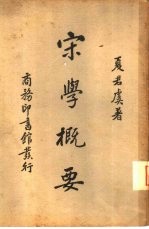 夏君虞著
宋學概要
商務印書館發行